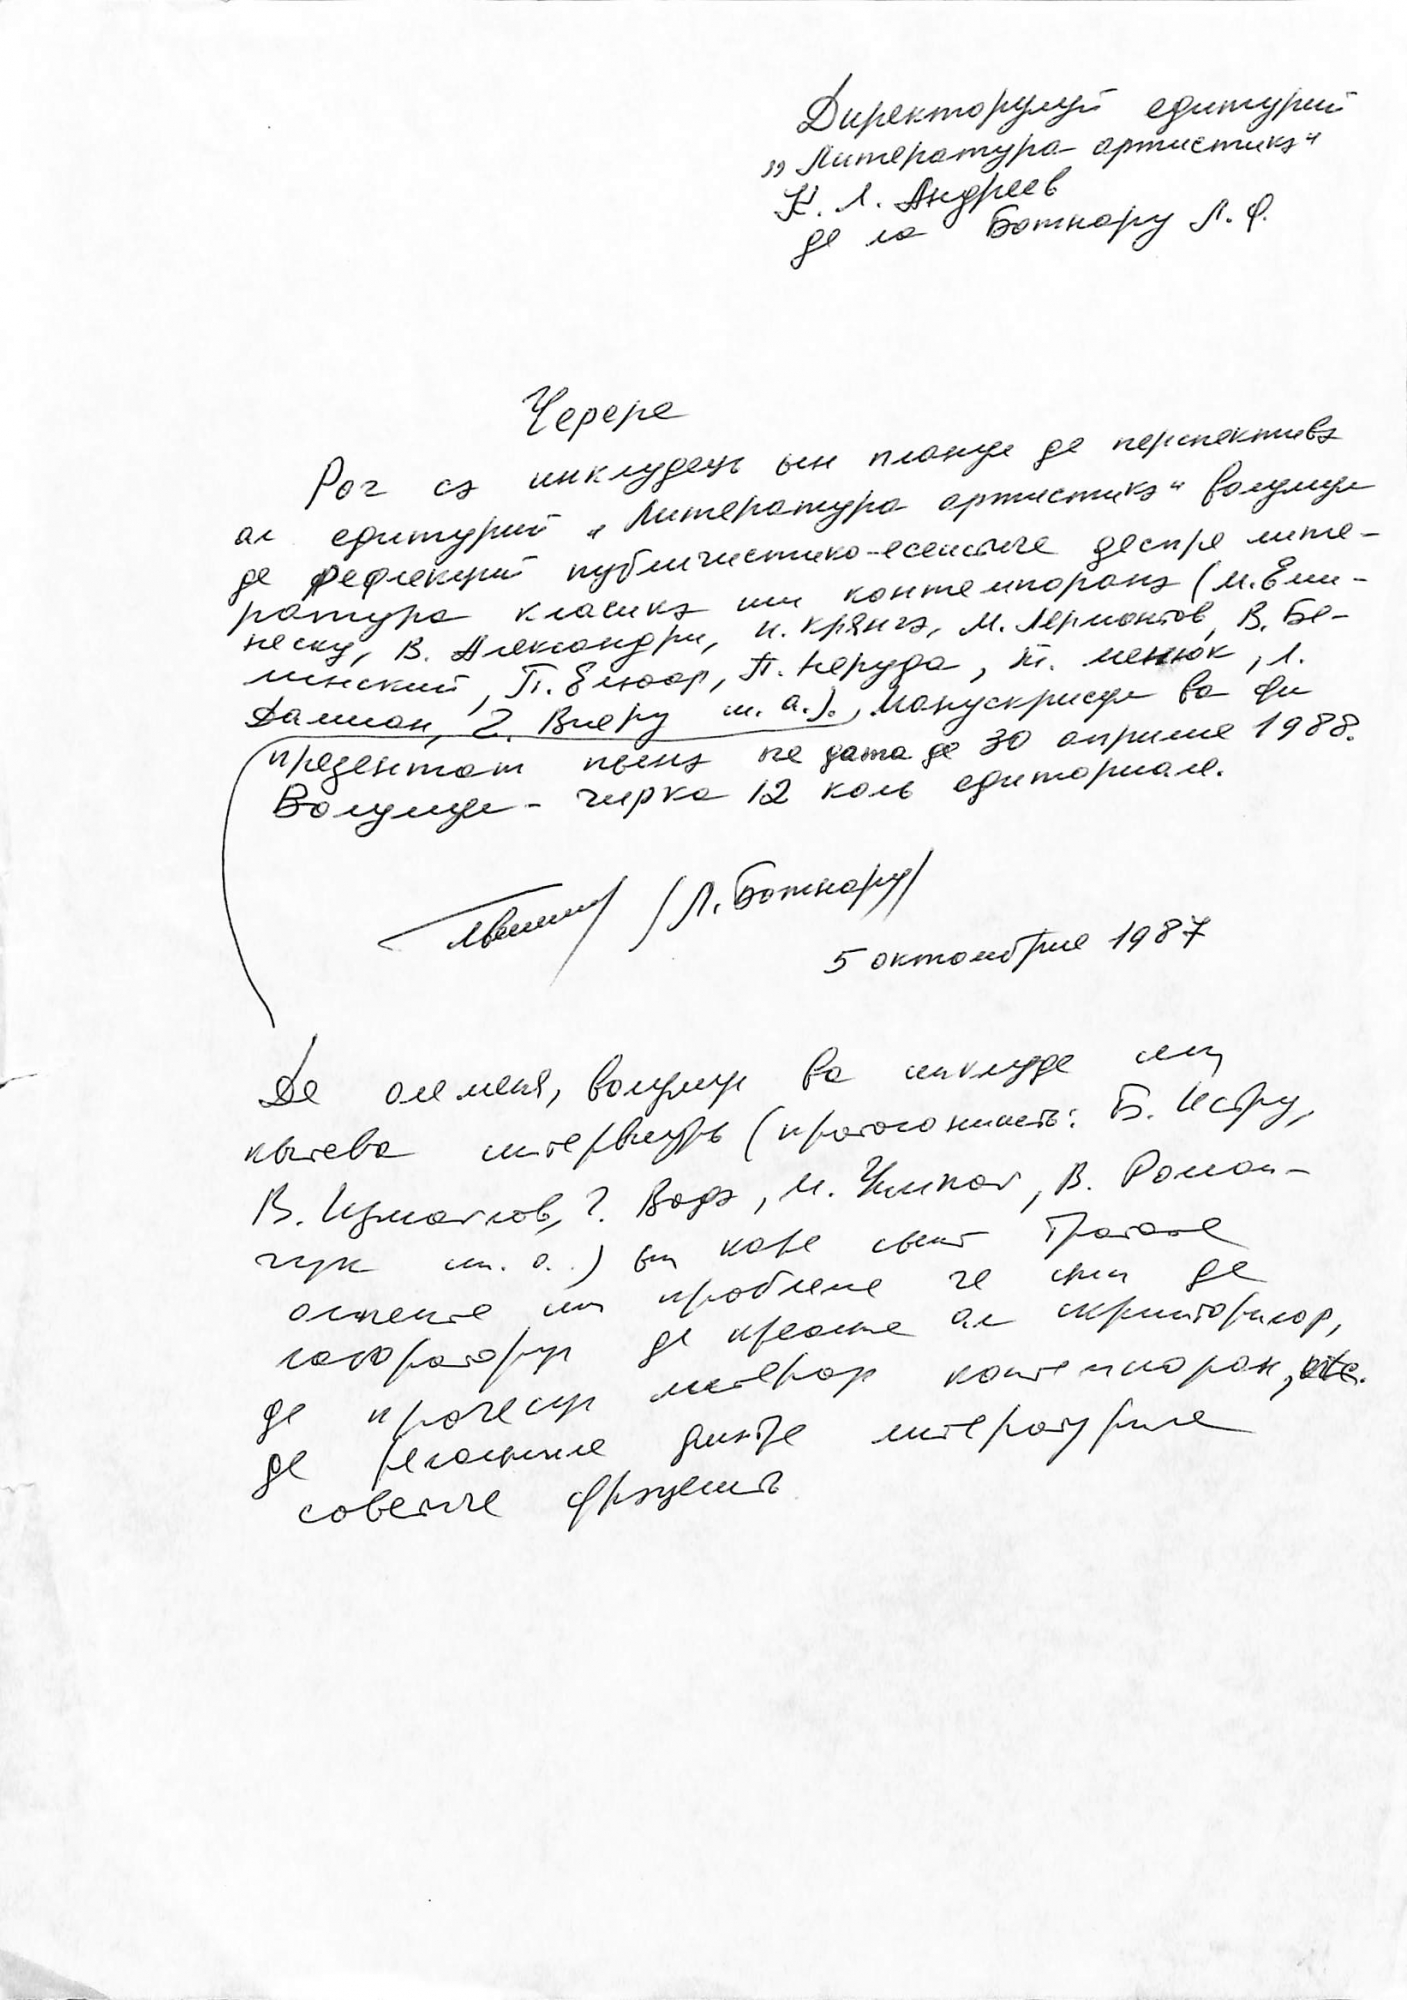 Директорулуй едитурий
„Литература артистикэ“
Н. Л. Андреев
де ла Ботнару Л. Ф.
Черере
Рог сэ инклудець ын планул де перспективэ
ал едитурий „Литература артистикэ“ волумул
де Рефлекций публичистико-есеистиче деспре лите-
ратура класикэ ши контемпоранэ (М. Еми-
неску, В. Александри, И. Крянгэ, М. Лермонтов, В. Бе-
линский, П. Елюар, П. Неруда, Л.
Дамиан, Г. Виеру ш. а.). Манускрисул ва фи
презентат пынэ ла дата де 30 априлие 1988.
Волумул – чирка 12 коль едиториале.
/Л. Ботнару/
5 октомбрие 1987
Де асеменя, волумул ва инклуде ши
кытева интервиурь (протагоништь: Б. Истру,
В. Измайлов, Г. Водэ, М. Чимпой, В. Роман-
чук ш. а.) ын каре сынт тратате
аспекте ши проблеме че цин де
лабораторул де креацие ал скрииторилор,
де прочесул литерар контемпоран,
де релацииле динтре литературиле
советиче фрэцешть